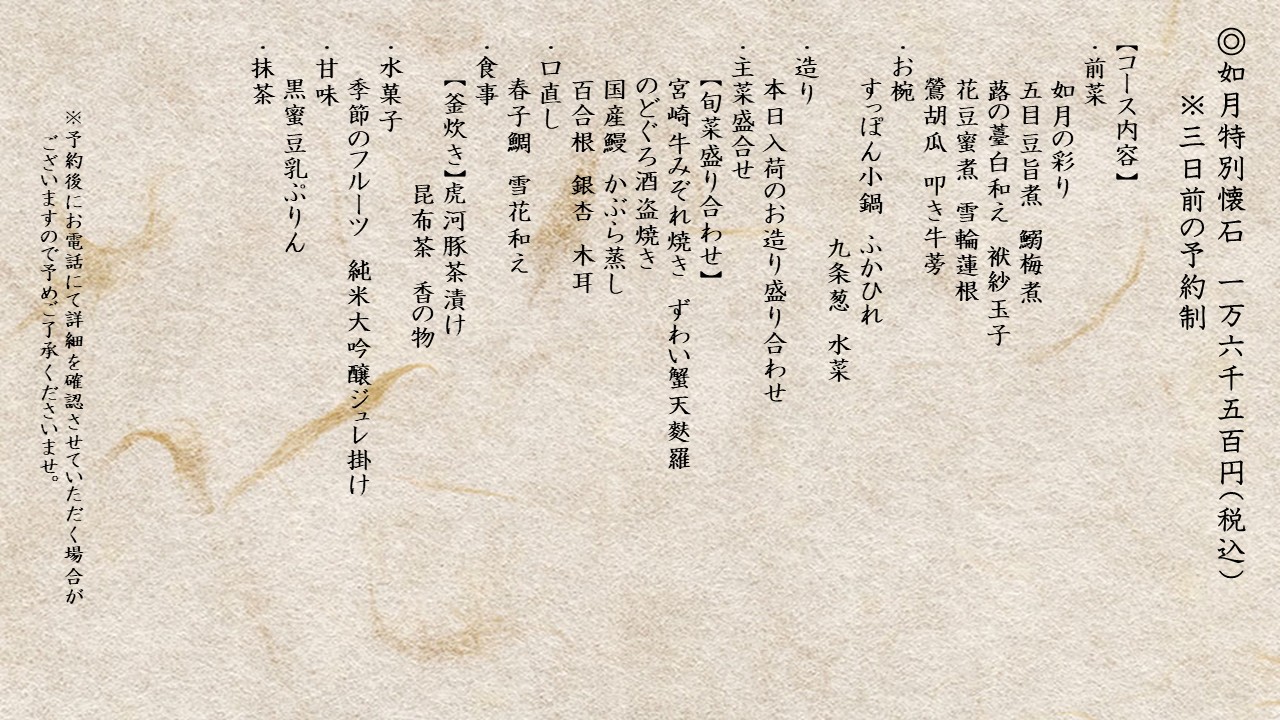 ◎如月特別懐石　一万六千五百円(税込)
※三日前の予約制
【コース内容】
・前菜
如月の彩り
五目豆旨煮　鰯梅煮
蕗の薹白和え　袱紗玉子
花豆蜜煮　雪輪蓮根
鶯胡瓜　叩き牛蒡
・お椀
すっぽん小鍋　ふかひれ
九条葱　水菜
・造り
本日入荷のお造り盛り合わせ
・主菜盛合せ
【旬菜盛り合わせ】
宮崎牛みぞれ焼き　ずわい蟹天麩羅
のどぐろ酒盗焼き
国産鰻　かぶら蒸し
百合根　銀杏　木耳
・口直し
春子鯛　雪花和え
・食事
【釜炊き】虎河豚茶漬け
昆布茶　香の物
・水菓子
季節のフルーツ　純米大吟醸ジュレ掛け
・甘味
黒蜜豆乳ぷりん
・抹茶
※予約後にお電話にて詳細を確認させていただく場合が
ございますので予めご了承くださいませ。